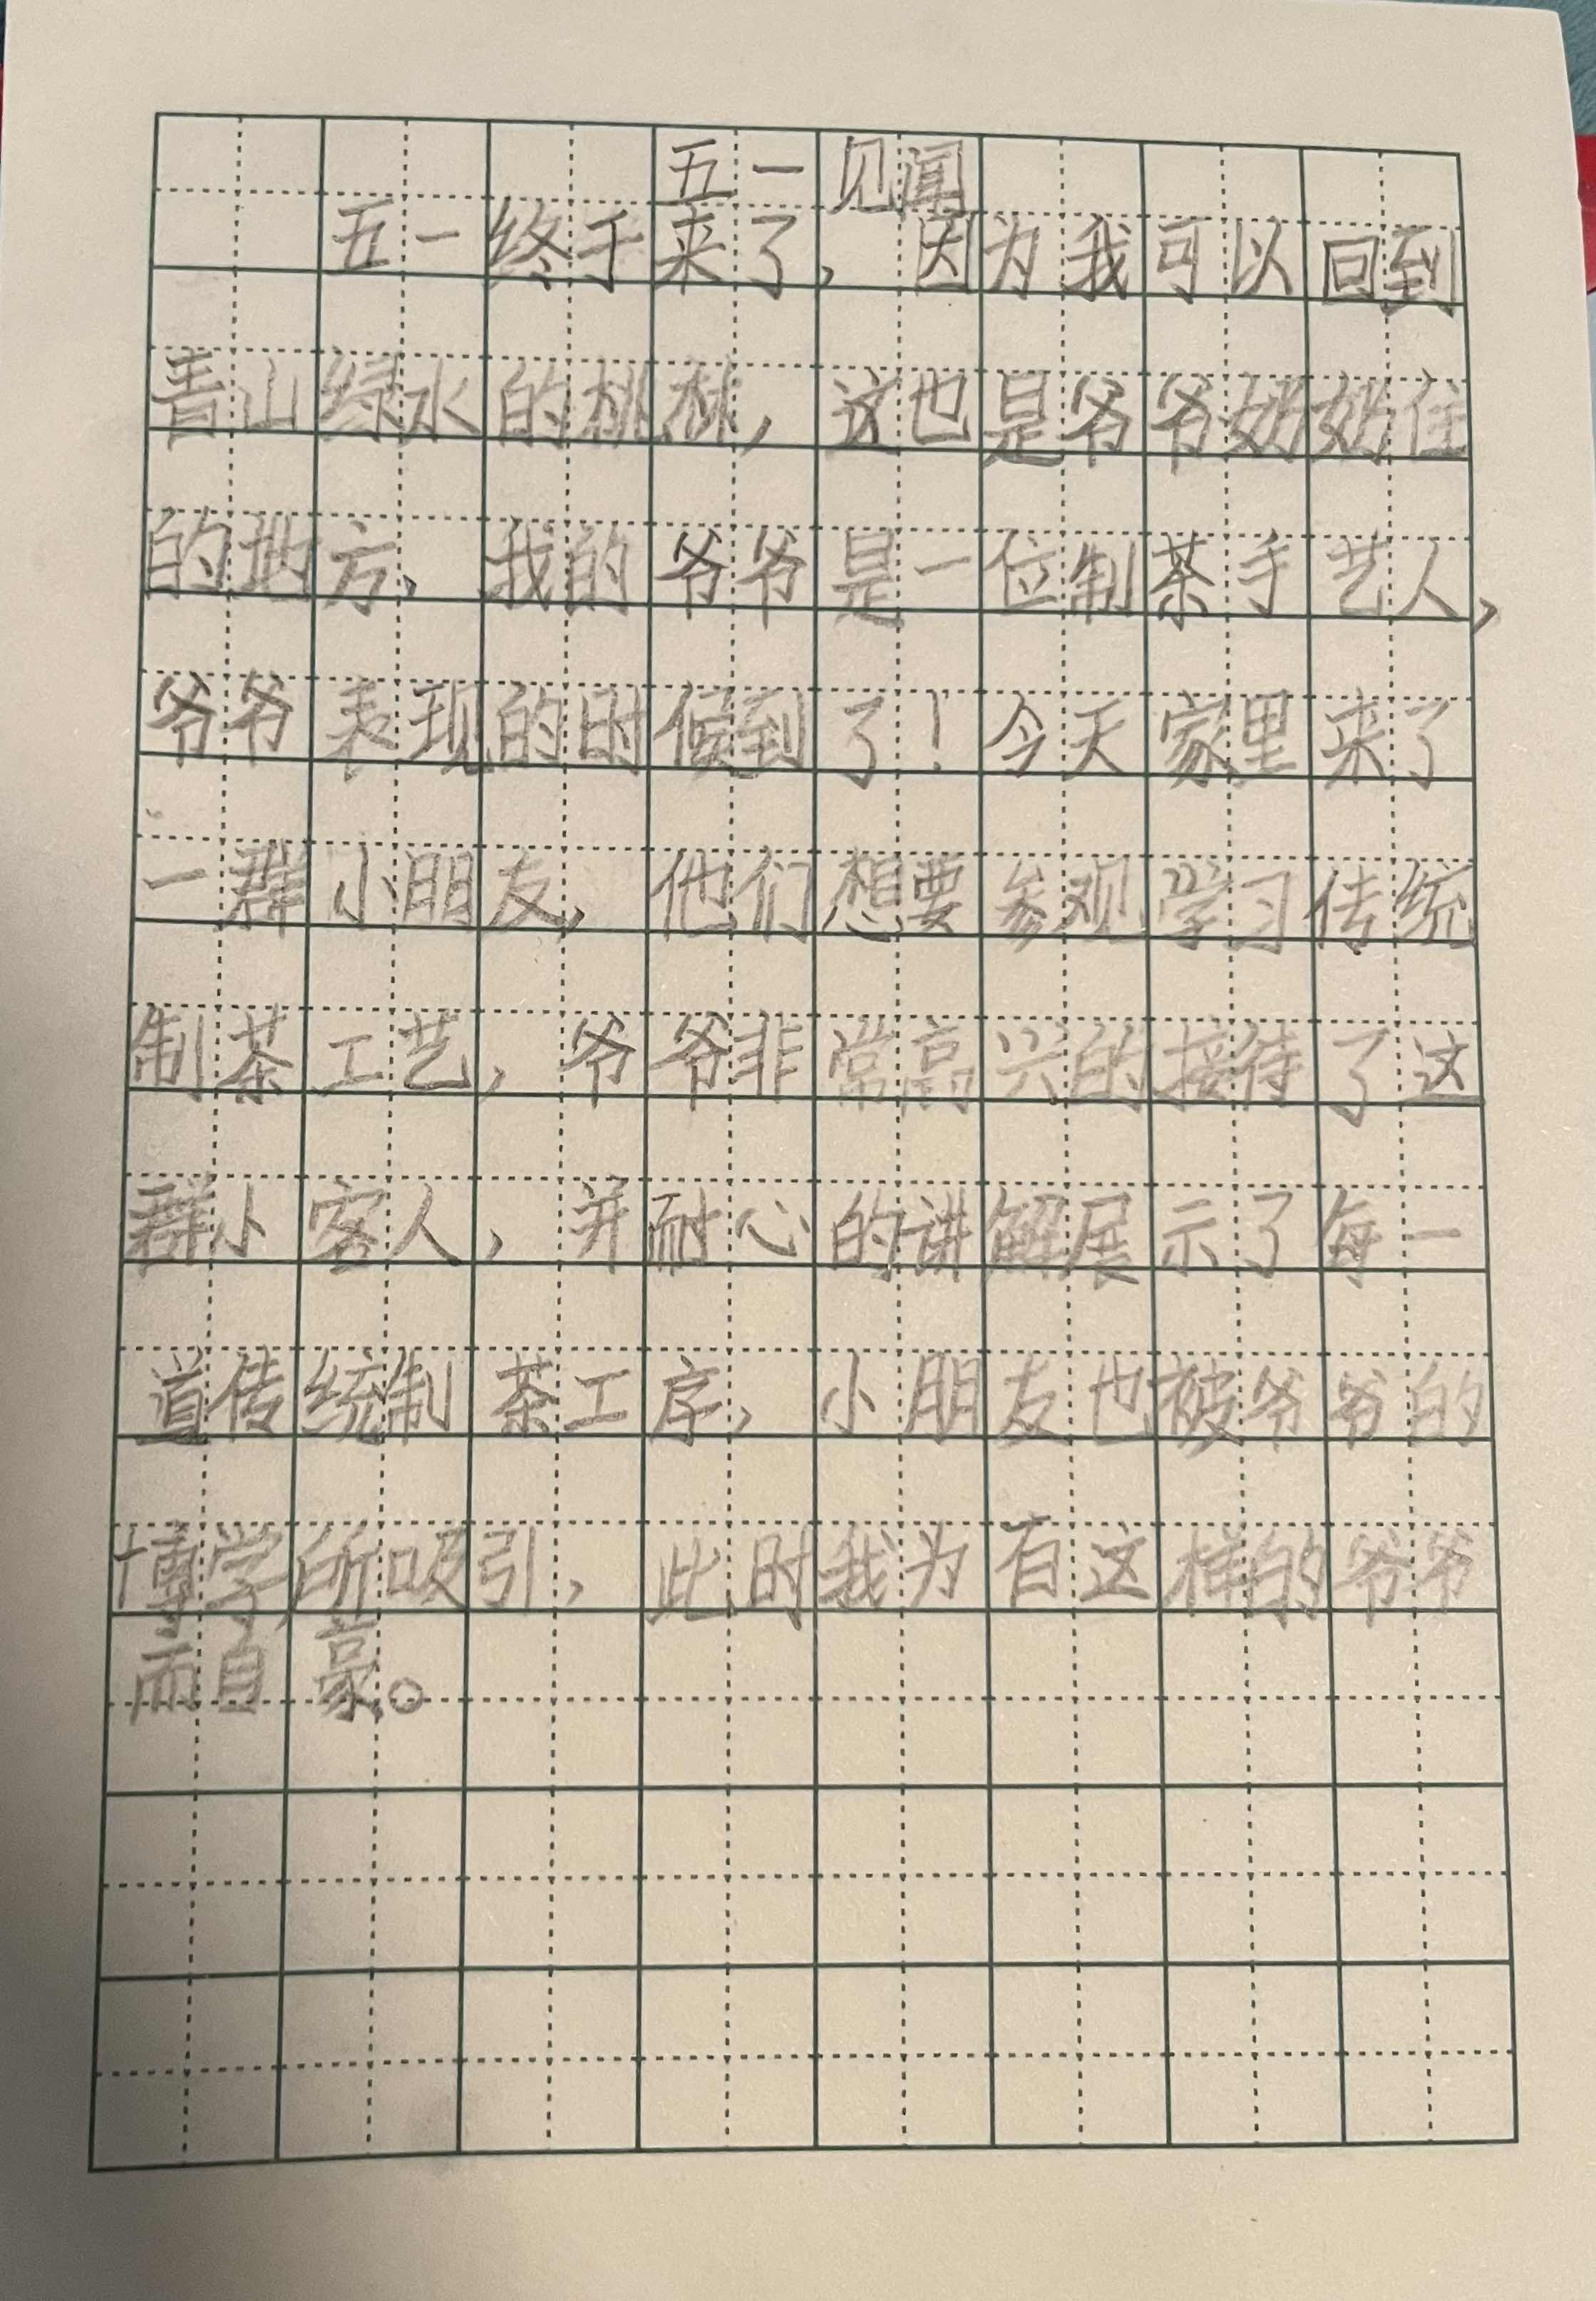 五一见闻
五一终于来了，因为我可以回到
青山绿水的桃林，这也是爷爷奶奶住
的地方，我的爷爷是一位制茶手艺人，
爷爷表现的时候到了！今天家里来了
一群小朋友，他们想要参观学习传统
制茶工艺，爷爷非常高兴的接待了这
群小客人，并耐心的讲解展示了每一
道传统制茶工序，小朋友也被爷爷的
博学所吸引，此时我为有这样的爷爷
而自豪。